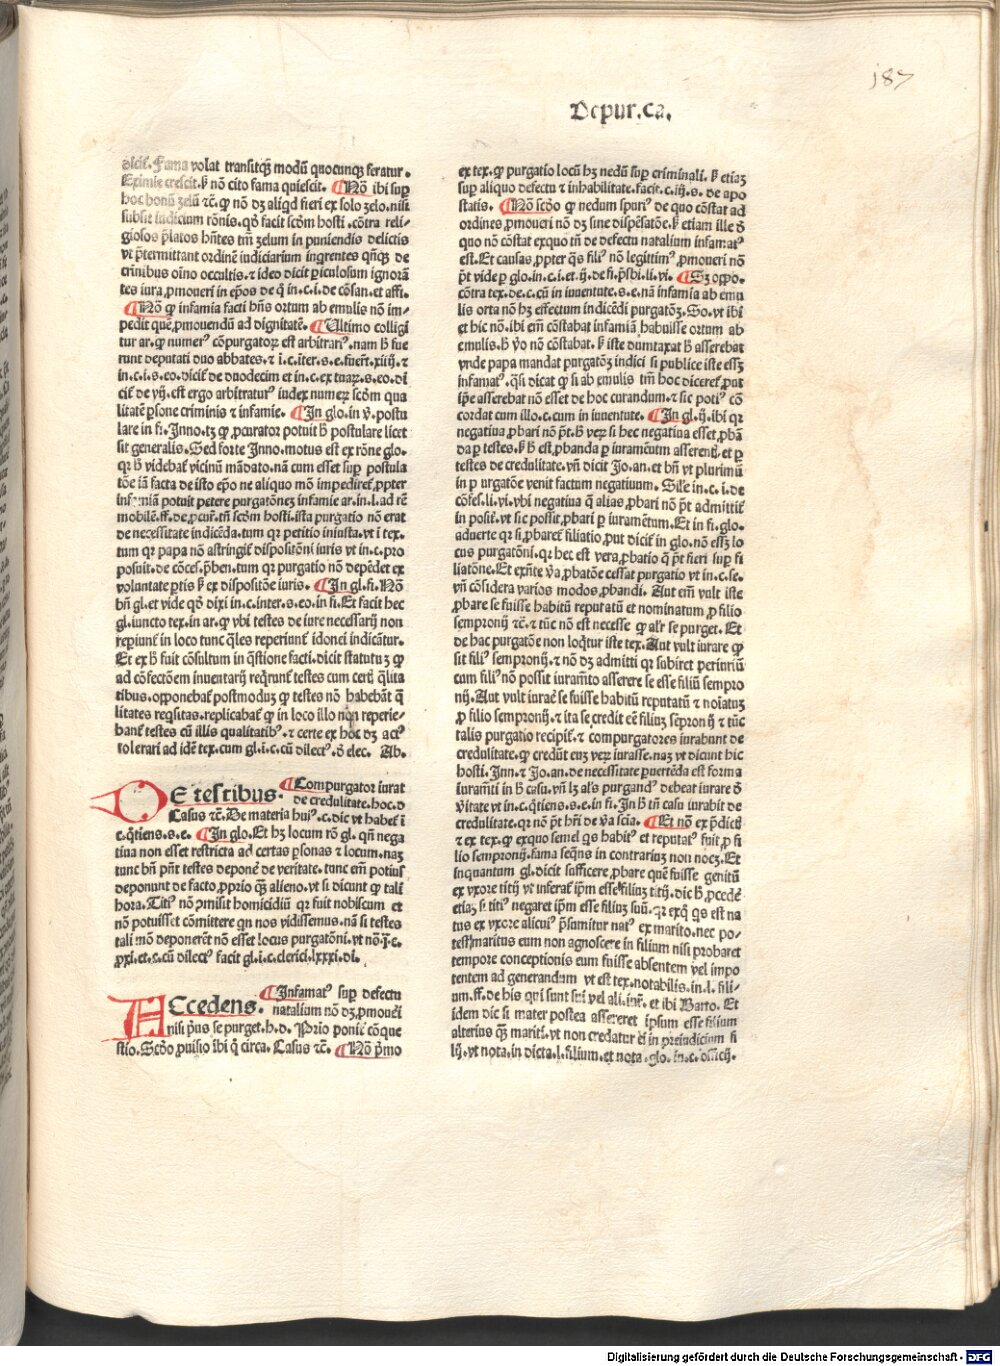 187
De pur. ca.
dicit. Fama volat transitqȝ modū quocunqȝ feratur.
Eximie crescit. ꝭ nō cito fama quiescit. ¶ Nō ibi sup
hoc bonū zelū ⁊c̄. ꝙ nō dȝ aliqd fieri ex solo zelo. nisi
subsit iudicium rōnis. qō facit scōm hosti. cōtra reli⸗
giosos p̄latos hn̄tes tm̄ zelum in puniendis delictis
vt p̄termittant ordinē iudiciarium ingrentes qn̄qȝ de
crinibus oīno occultis. ⁊ ideo dicit ꝑiculosum ignorā
tes iura ꝓmoueri in ep̄os de q̄ in. c. i. de cōsan. et affi.
¶ Nō ꝙ infamia facti hn̄s ortum ab emulis nō im⸗
pedit quē ꝓmouendū ad dignitatē. ¶ Ultimo colligi
tur ar. ꝙ numerꝰ cōpurgatoꝝ est arbitrariꝰ. nam h̄ fue
runt deputati duo abbates. ⁊ i. c. iter. s. e. fuerūt. xiiij. ⁊
in. c. i. s. eo. dicit̄ de duodecim et in. c. ex tuaꝝ. s. eo. di
cit̄ de vij. est ergo arbitraturꝰ iudex numeꝝ scōm qua
litatē ꝑsone criminis ⁊ infamie. ¶ In glo. in v̄. postu
lare in fi. Inno. tȝ ꝙ ꝓcurator potuit h̄ postulare licet
sit generalis. Sed forte Inno. motus est ex rōne glo.
qꝛ h̄ videbat̄ vicinū mādato. nā cum esset sup postula
tōe iā facta de isto ep̄o ne aliquo mō impediret̄ ꝓpter
infamiā potuit petere purgatōneȝ infamie ar. in. l. ad rē
mobilē. ff. de. ꝓcur. tn̄ scōm hosti. ista purgatio nō erat
de necessitate indicēda. tum qꝛ petitio iniusta. vt i tex.
tum qꝛ papa nō astringit̄ dispositōni iuris vt in. c. pro
posuit. de cōces. p̄ben. tum qꝛ purgatio nō depēdet ex
voluntate ꝑtis ꝭ ex dispositōe iuris. ¶ In gl. fi. Nō
bn̄ gl. et vide qō dixi in. c. inter. s. eo. in fi. Et facit hec
gl. iuncto tex. in ar. ꝙ vbi testes de iure necessarij non
reꝑiunt̄ in loco tunc q̄les reperiunt̄ idonei indicātur.
Et ex h̄ fuit cōsultum in q̄stione facti. dicit statutuȝ ꝙ
ad cōfectōem inuentarij reqrunt̄ testes cum certi q̄lita
tibus. opponebat̄ postmoduȝ ꝙ testes nō habebāt q̄
litates reqsitas. replicabat̄ ꝙ in loco illo non reperie⸗
bant̄ testes cū illis qualitatibꝰ. ⁊ certe ex hoc dȝ actꝰ
tolerari ad idē tex. cum gl. i. c. cū dilectꝰ. d̄ elec. Ab.
DE testibus. ¶ Compurgator iurat
de credulitate. hoc. d
Casus ⁊c̄. De materia huiꝰ. c. dic vt habet̄ i
c. q̄tiens. s. e. ¶ In glo. Et hȝ locum rō gl. qn̄ nega
tiua non esset restricta ad certas ꝑsonas ⁊ locum. naȝ
tunc bn̄ pn̄t testes deponē de veritate. tunc em̄ potius
deponunt de facto ꝓprio qȝ alieno. vt si dicunt ꝙ tali
hora. Titiꝰ nō ꝯmisit homicidiū qꝛ fuit nobiscum et
nō potuisset cōmittere qn nos vidissemus. nā si testes
tali mō deponerēt nō esset locus purgatōni. vt nō. i. c.
ꝓxi. et. c. cū dilectꝰ facit gl. i. c. clerici. lxxxi. di.
ACcedens. ¶ Infamatꝰ sup defectu
natalium nō dȝ ꝓmoueri
nisi p̄us se purget. h. d. Prio ponit̄ cōque
stio. Scōo ꝓuisio ibi q̄ circa. Casus ⁊c̄. ¶ Nō p̄mo
ex tex. ꝙ purgatio locū hȝ nedū sup criminali. ꝭ etiaȝ
sup aliquo defectu ⁊ inhabilitate. facit. c. iij. s. de apo
statis. ¶ Nō scōo ꝙ nedum spuriꝰ de quo cōstat ad
ordines ꝓmoueri nō dȝ sine dispēsatōe. ꝭ etiam ille d̄
quo nō cōstat exquo tn̄ de defectu natalium infamatꝰ
est. Et causas ꝓpter q̄s filiꝰ nō legittimꝰ ꝓmoueri nō
pōt vide ꝑ glo. in. c. i. et. ij. de fi. p̄sbi. li. vi. ¶ Sȝ oppo.
cōtra tex. de. c. cū in iuuentute. s. e. nā infamia ab emu
lis orta nō hȝ effectum indicēdi purgatōȝ. So. vt ibi
et hic nō. ibi em̄ cōstabat infamiā habuisse ortum ab
emulis. h̄ v̄o nō cōstabat. ꝭ iste dumtaxat h̄ asserebat
vnde papa mandat purgatōȝ indici si publice iste essȝ
infamatꝰ. q̄si dicat ꝙ si ab emulis tm̄ hoc diceret̄ ꝓut
ip̄e asserebat nō esset de hoc curandum. ⁊ sic potiꝰ cō
cordat cum illo. c. cum in iuuentute. ¶ In gl. ij. ibi qꝛ
negatiua ꝓbari nō pōt. h̄ veꝝ si hec negatiua esset ꝓbā
da ꝑ testes. ꝭ h̄ est ꝓbanda ꝑ iuramentum asserentis. et ꝑ
testes de credulitate. vn̄ dicit Jo. an. et bn̄ vt plurimū
in purgatōne venit factum negatiuum. Sil̄e in. c. i. de
cōfes. li. vi. vbi negatiua q̄ alias ꝓbari nō pōt admittit̄
in posit. vt sic possit ꝓbari ꝑ iuramētum. Et in fi. glo.
aduerte qꝛ si ꝓbaret̄ filiatio ꝓut dicit̄ in glo. nō essȝ lo
cus purgatōni. qꝛ hec est vera ꝓbatio q̄ pōt fieri sup fi
liatōne. Et exn̄te v̄a ꝓbatōe cessat purgatio vt in. c. se.
vn̄ cōsidera varios modos ꝓbandi. Aut em̄ vult iste
ꝓbare se fuisse habitū reputatū et nominatum ꝓ filio
sempronij ⁊c̄. ⁊ tūc nō est necesse ꝙ alr̄ se purget. Et
de hac purgatōe non loqt̄ur iste tex. Aut vult iurare ꝙ
sit filiꝰ sempronij. ⁊ nō dȝ admitti qꝛ subiret periuriū
cum filiꝰ nō possit iuramto asserere se esse filiū sempro
nij. Aut vult iurare se fuisse habitū reputatū ⁊ noīatuȝ
ꝓ filio sempronij. ⁊ ita se credit eē filiuȝ sēpronij ⁊ tūc
talis purgatio recipit̄. ⁊ compurgatores iurabunt de
credulitate. ꝙ credūt euȝ veꝝ iurasse. naȝ vt dicunt hic
hosti. Inn. ⁊ Jo. an. de necessitate ꝑuertēda est forma
iuramti in h̄ casu. vn̄ lȝ alꝰs purgandꝰ debeat iurare d̄
v̄itate vt in. c. q̄tiens. s. e. in fi. In h̄ tn̄ casu iurabit de
credulitate. qꝛ nō pōt h̄ri de v̄a scia. ¶ Et nō ex p̄dictis
⁊ ex tex. ꝙ exquo semel q̄s habitꝰ et reputatꝰ fuit ꝓ fi
lio sempronij. fama seq̄ns in contrariuȝ non nocȝ. Et
inquantum gl. dicit sufficere ꝓbare quē fuisse genitū
ex vxore titij vt inferat̄ ip̄m esse filiuȝ titij. dic h̄ ꝓcedē
etiaȝ si titiꝰ negaret ip̄m esse filiuȝ suū. qꝛ exq̄ q̄s est na
tus ex vxore alicuiꝰ p̄sumitur natꝰ ex marito. nec po⸗
test maritus eum non agnoscere in filium nisi probaret
tempore conceptionis eum fuisse absentem vel impo
tentem ad generandum vt est tex. notabilis. in. l. fili⸗
um. ff. de his qui sunt sui vel ali. iur. et ibi Barto. Et
idem dic si mater postea assereret ipsum esse filium
alterius qȝ mariti. vt non credatur ei in preiudicium fi
lij. vt nota. in dicta. l. filium. et nota. glo. in. c. officij.
Digitalisierung gefördert durch die Deutsche Forschungsgemeinschaft - DFG